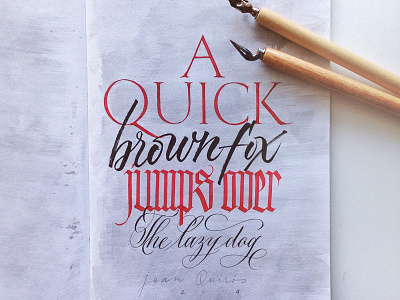 A
QUICK
brown fox
jumps over
The lazy dog
Joan Quirós